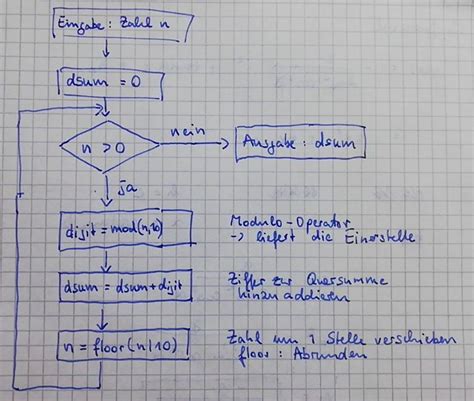 Eingabe: Zahl n
dsum = 0
n > 0
nein
Ausgabe: dsum
ja
digit = mod(n,10)
Modulo-Operator
-> liefert die Einerstelle
dsum = dsum + digit
Ziffer zur Quersumme
hinzu addieren
n = floor(n/10)
Zahl um 1 Stelle verschieben
floor: Abrunden